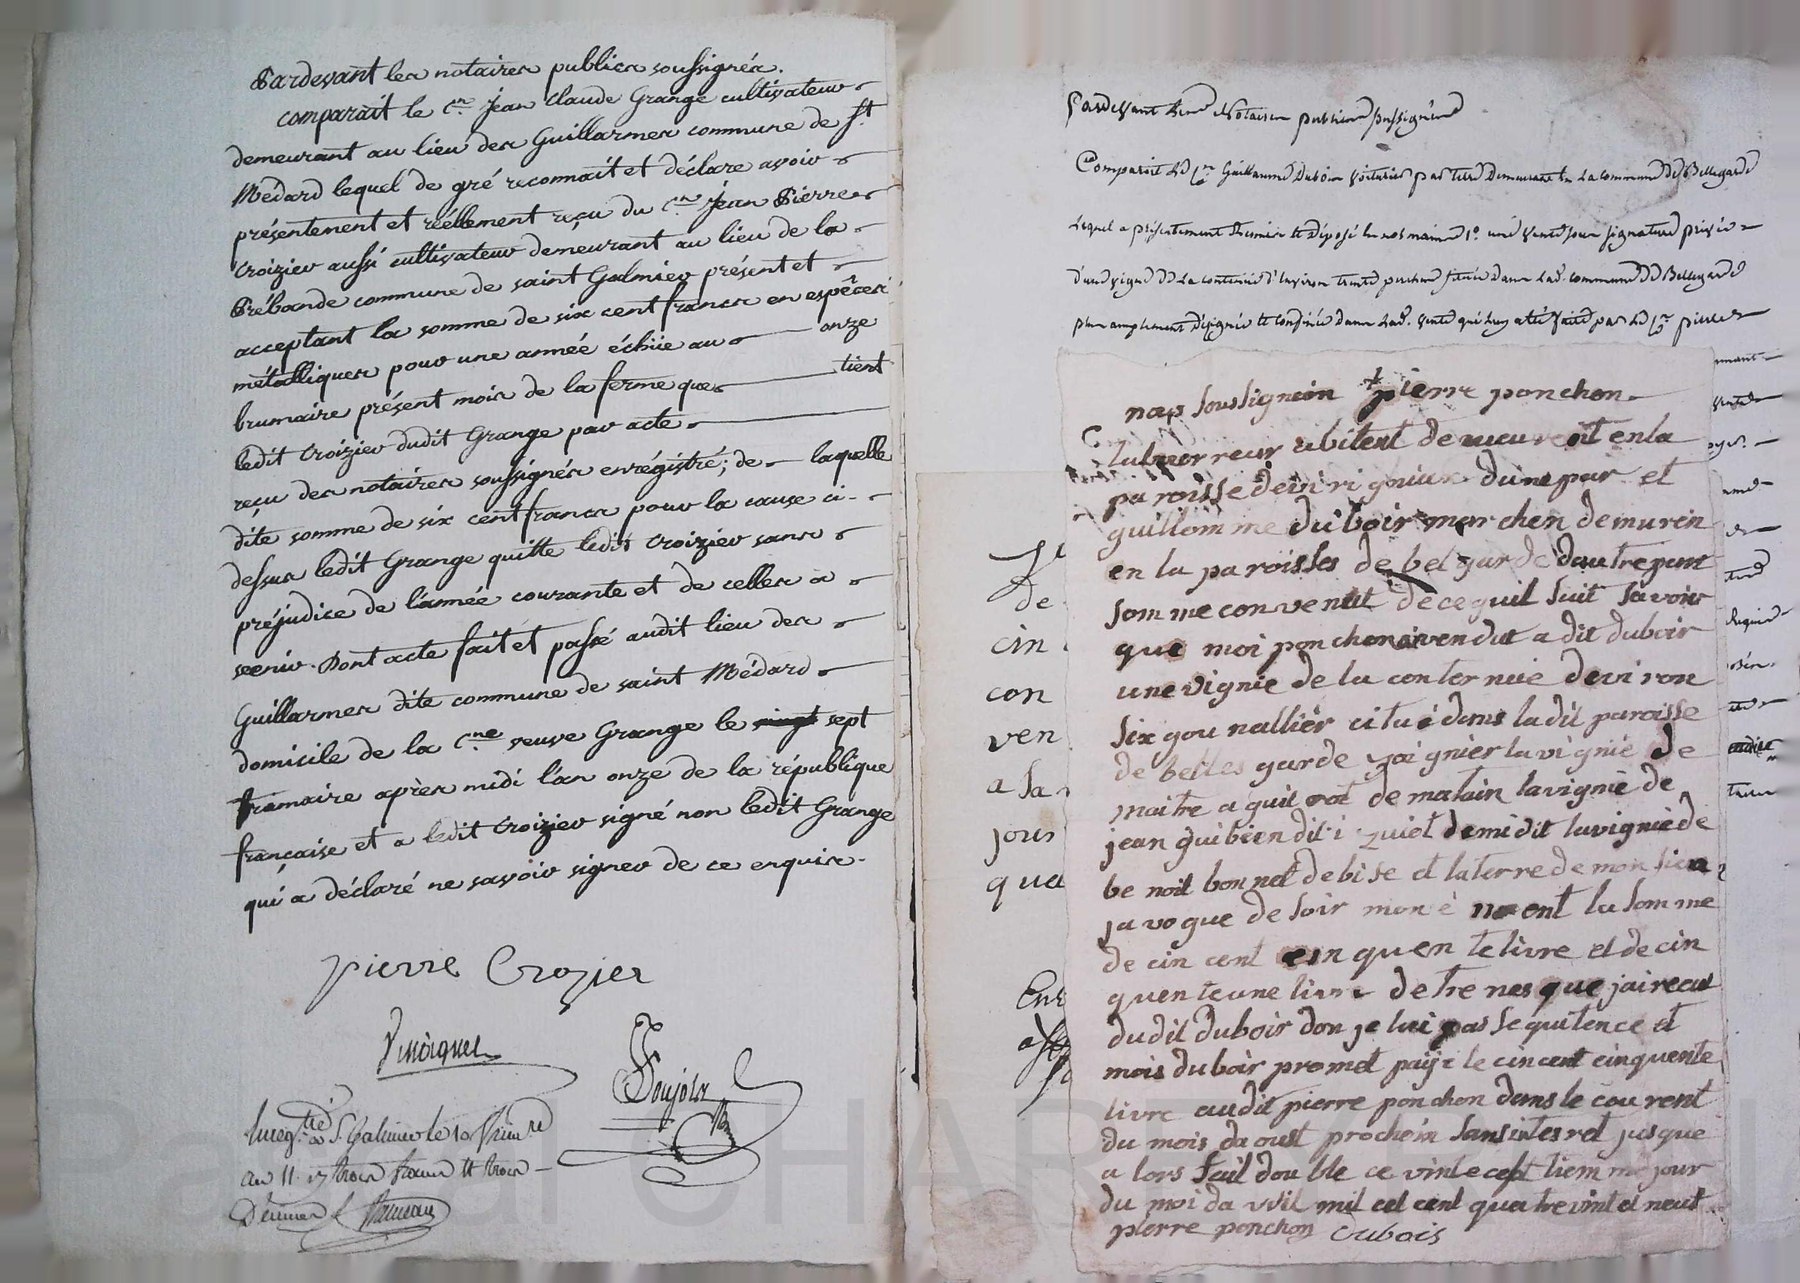 Pardevant les notaires publics soussignés.
comparait le Cen Jean Claude Grange cultivateur
demeurant au lieu des Guillarmes commune de St
Médard lequel de gré reconnait et déclare avoir
présentement et réellement reçu du Cen Jean Pierre
Croizier aussi cultivateur demeurant au lieu de la
Prébande commune de saint Galmier présent et
acceptant la somme de six cent francs en espêces
métalliques pour une année échüe au onze
brumaire présent mois de la ferme que tient
ledit Croizier dudit Grange par acte
reçu des notaires soussignés enrégistré; de laquelle
dite somme de six cent francs pour la cause ci-
dessus ledit Grange quitte ledit Croizier sans
préjudice de l'année courante et de celles a
venir. Dont acte fait et passé audit lieu des
Guillarmes dite commune de saint Médard
domicile de la Cne veuve Grange le sept
frimaire après midi l'an onze de la république
française et a ledit Croizier signé non ledit Grange
qui a déclaré ne savoir signer de ce enquis.
pierre Crozier
Ponjols
Enregtré a St Galmier le 10 frim.re
an 11
Pardevant les Notaires publics soussignés
Comparoit le Cen Guillaume Dubois voiturier par terre demeurant en la commune de Bellegarde
Lequel a présentement remis et déposé en nos mains 1º. une vente sous signature privée
d'une vigne de la contenue d'environ trente perches située dans lad. commune de Bellegarde
plus amplement désignée et confinée dans lad. vente qui luy a été faite par le Cen pierre
nous soussignein pierre ponchon
laborreur abitent demeuroit en la
paroisse deivrignieux dune par et
guillomme duboir marchen demuren
en la paroisses de bel garde dautre part
somme convenut de ce quil suit savoir
que moi ponchon ai vendut a dit duboir
une vignie de la conternuie deiviron
six gournallièr cituè dans la dit paroisse
de belles garde joignier la vignie de
maitre aguil rot de matain la vignie de
jean guibien dit i quiet de midit la vignie de
be noit bonnet de bise et la terre de monsieu
javogue de soir moné nent la somme
de cin cent cin quen te livre et de cin
quen te une livre de tre nes que jai recut
dudit duboir don je lui passe quitence et
mois duboir promet payé le cin cent cinquente
livre audit pierre ponchon dans le courent
du mois daoust prochein sans interret jusque
a lors fait double ce vint e cept tiemme jour
du moi davril mil cet cent quatre vint et neuf
pierre ponchon dubois
de
cin
con
ven
a la
jour
qua